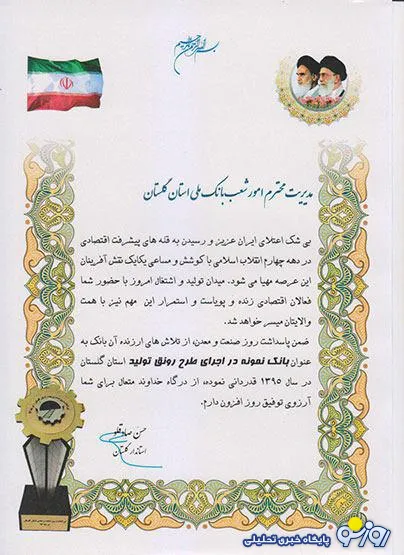 بسم الله الرحمن الرحیم
مدیریت محترم امور شعب بانک ملی استان گلستان
بی شک اعتلای ایران عزیز و رسیدن به قله های پیشرفت اقتصادی
در دهه چهارم انقلاب اسلامی با کوشش و مساعی یکایک نقش آفرینان
این عرصه مهیا می شود. میدان تولید و اشتغال امروز با حضور شما
فعالان اقتصادی زنده و پویاست و استمرار این مهم نیز با همت
والایتان میسر خواهد شد.
ضمن پاسداشت روز صنعت و معدن، از تلاش های ارزنده آن بانک به
عنوان بانک نمونه در اجرای طرح رونق تولید استان گلستان
در سال ۱۳۹۵ قدردانی نموده، از درگاه خداوند متعال برای شما
آرزوی توفیق روز افزون دارم.
حسن صادقلو
استاندار گلستان
روز نو
پایگاه خبری تحلیلی